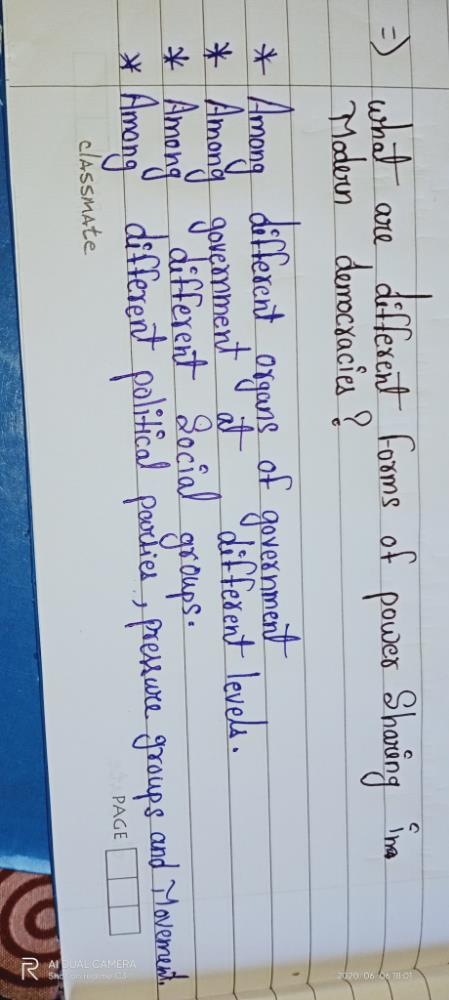 => What are different forms of power Sharing in
Modern democracies?
* Among different organs of government
* Among government at different levels.
* Among different Social groups.
* Among different political parties, pressure groups and Movement.
classmate
PAGE
AI DUAL CAMERA
Shot on realme C3
2020/06/06 18:01